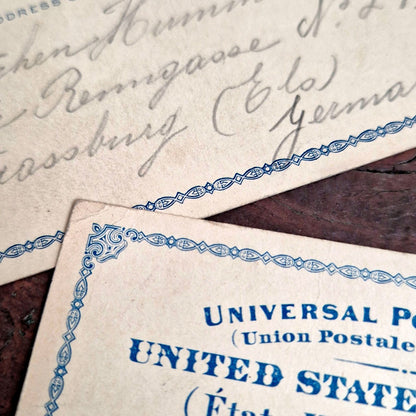 DDRESS
Humm
Renngasse No 2
rassburg (Els)
Germa
UNIVERSAL PO
(Union Postale
UNITED STATE
(États